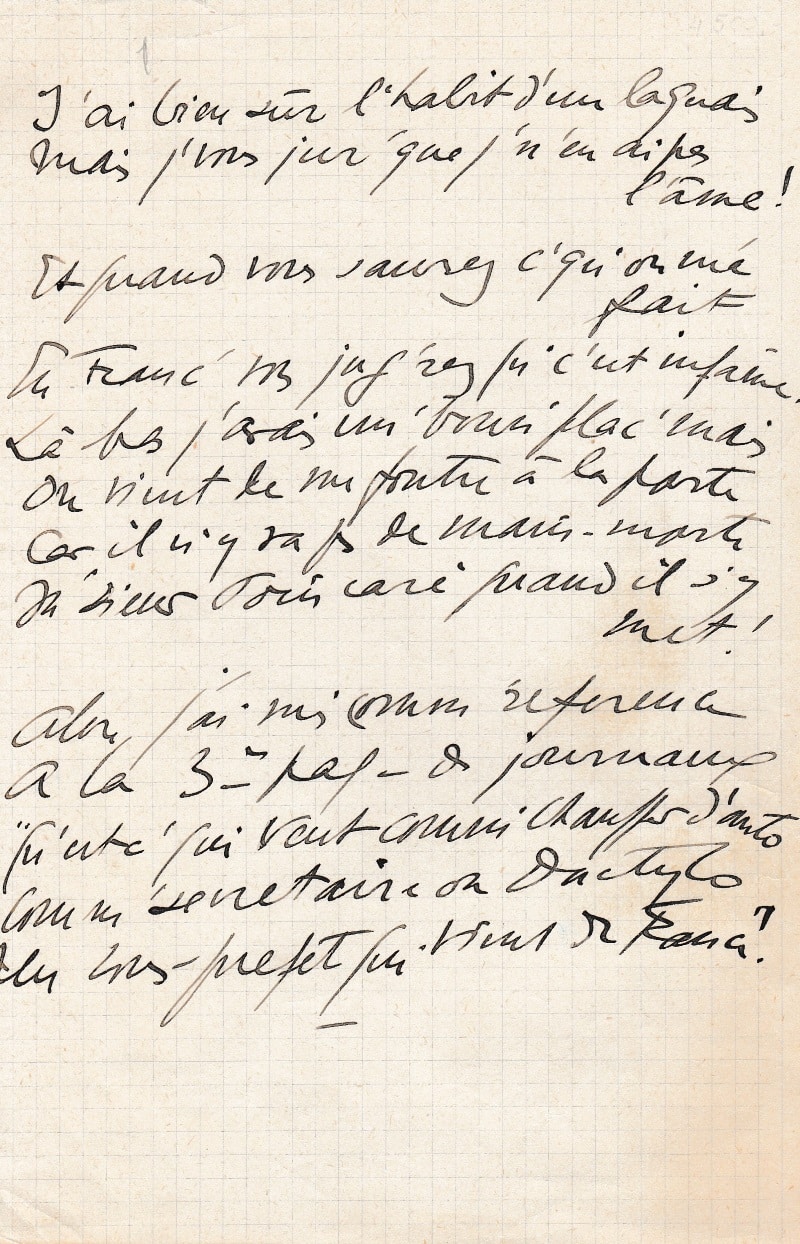 1
J'ai bien sûr l'habit d'un laquais
Mais j'vous jur' que j'n'en ai pas
l'âme!
Et quand vous saurez c'qu'on m'a
fait
En Franc' vous jug'rez qu'c'est infâme.
Là bas j'avais un' bonn' plac' mais
On vient de me foutre à la porte
Car il n'y va pas de main-morte
M'sieur Poincaré quand il s'y
met!
Alors j'ai mis comm' référence
A la 3me pag- des journaux
"Qu'est c' qui veut comm' chauffeur d'auto
Comm' secrétaire ou Dactylo
Un sous-préfet qui vient de France?"